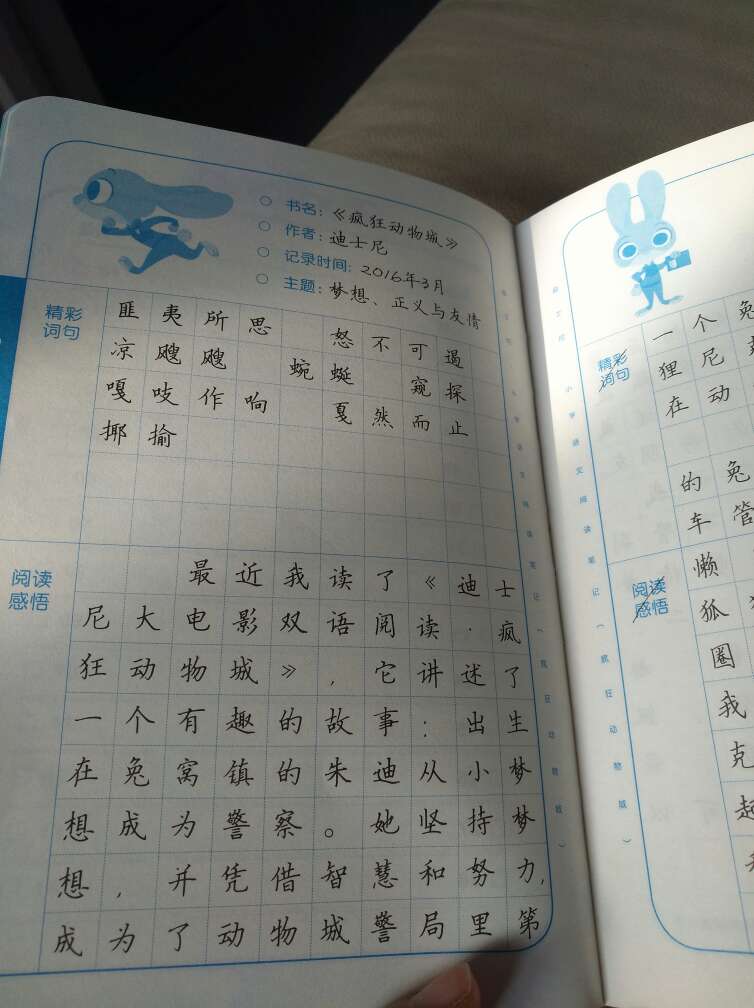 书名：《疯狂动物城》
作者：迪士尼
记录时间：2016年3月
主题：梦想、正义与友情
精彩
词句
匪夷所思 怒不可遏
凉飕飕 蜿蜒 窥探
嘎吱作响 戛然而止
揶揄
阅读
感悟
最近我读了《迪士
尼大电影双语阅读·疯
狂动物城》，它讲述了
一个有趣的故事：出生
在兔窝镇的朱迪从小梦
想成为警察。她坚持梦
想，并凭借智慧和努力，
成为了动物城警局里第
小学语文阅读笔记（疯狂动物城）
精彩
词句
一个兔
狸尼
在动
的兔
车管
阅读
感悟
懒
狐
圈
我
克
起